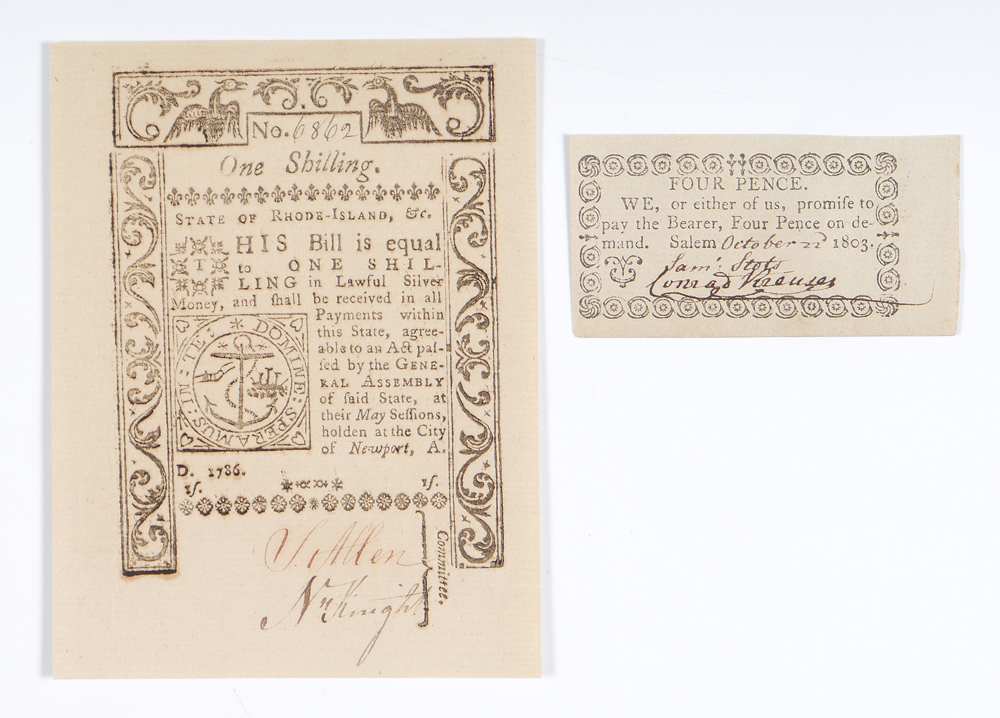 No. 6862
One Shilling.
STATE OF RHODE-ISLAND, &c.
THIS Bill is equal
to ONE SHIL-
LING in Lawful Silver
Money, and ſhall be received in all
Payments within
this State, agree-
able to an Act paſ-
ſed by the GENE-
RAL ASSEMBLY
of ſaid State, at
their May Seſſions,
holden at the City
of Newport, A.
D. 1786.
1ſ. 1ſ.
IN : TE : DOMINE : SPERAMUS :
S. Allen
Nn Knight
Committee.
FOUR PENCE.
WE, or either of us, promiſe to
pay the Bearer, Four Pence on de-
mand. Salem October 22d 1803.
Saml. Stots
Conrad Kreuser